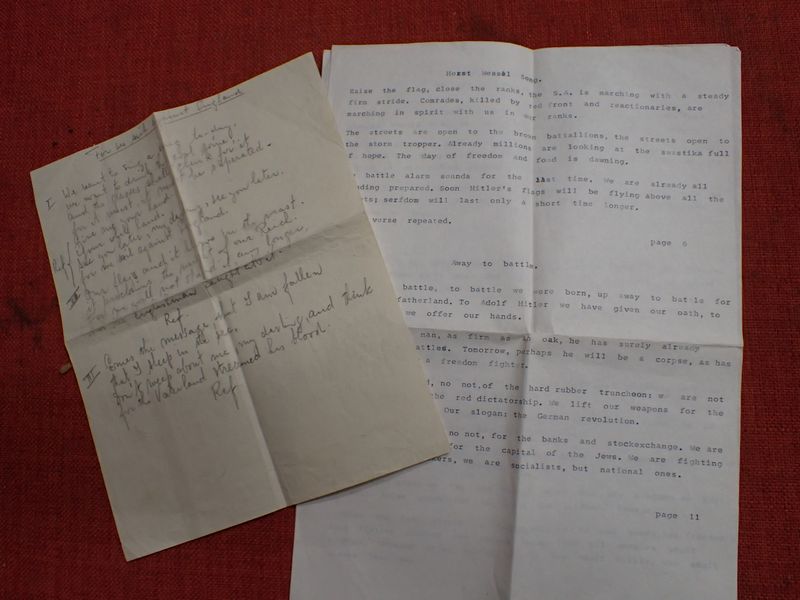 For we sail against England
I We want to sing a song to-day.
we want to drink
and the glasses shall
for it must be
give my your hand
your white hand
see you later, my darling, see you later.
for we sail against England.
Ref
Our flag and it
It proclaims the power of our Reich.
for we will not stand it any longer.
Englishman
Ref.
II Comes the message that I am fallen
that I sleep in the sea.
Don't weep about me my darling and think
for the Vaterland streamed his blood.
Ref
Horst Wessel Song.
Raise the flag, close the ranks, the S.A. is marching with a steady
firm stride. Comrades, killed by red front and reactionaries, are
marching in spirit with us in our ranks.
The streets are open to the brown battallions, the streets open to
the storm tropper. Already millions are looking at the swastika full
of hope. The day of freedom and food is dawning.
battle alarm sounds for the last time. We are already all
prepared. Soon Hitler's flags will be flying above all the
serfdom will last only a short time longer.
verse repeated.
page 6
Away to battle.
battle, to battle we were born, up away to battle for
fatherland. To Adolf Hitler we have given our oath, to
we offer our hands.
man, as firm as an oak, he has surely already
Tomorrow, perhaps he will be a corpse, as has
a freedom fighter.
no not,of the hard rubber truncheon: we are not
the red dictatorship. We lift our weapons for the
Our slogan: the German revolution.
no not, for the banks and stockexchange. We are
for the capital of the Jews. We are fighting
we are socialists, but national ones.
page 11